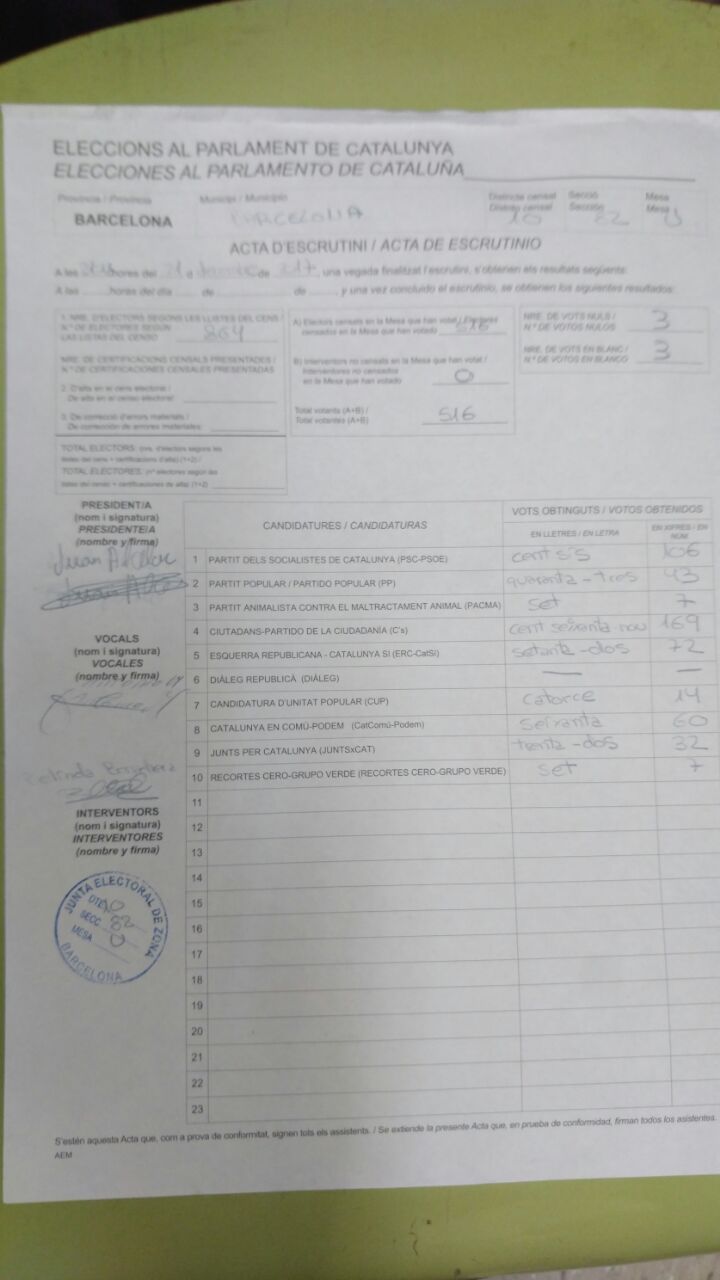 ELECCIONS AL PARLAMENT DE CATALUNYA
ELECCIONES AL PARLAMENTO DE CATALUÑA
Província / Provincia Municipi / Municipio Districte censal Secció Mesa
Distrito censal Sección Mesa
BARCELONA BARCELONA 10 82 U
ACTA D'ESCRUTINI / ACTA DE ESCRUTINIO
A les hores del 21 d de 2017, una vegada finalitzat l'escrutini, s'obtenen els resultats següents:
A las hores del día de de y una vez concluido el escrutinio, se obtienen los siguientes resultados:
1. NRE. D'ELECTORS SEGONS LES LLISTES DEL CENS /
N.º DE ELECTORES SEGÚN
LAS LISTAS DEL CENSO 864
NRE. DE CERTIFICACIONS CENSALS PRESENTADES /
N.º DE CERTIFICACIONES CENSALES PRESENTADAS
2. D'alta en el cens electoral /
De alta en el censo electoral:
3. De correcció d'errors materials /
De corrección de errores materiales:
TOTAL ELECTORS: (nre. d'electors segons les
llistes del cens + certificacions d'alta) (1+2) /
TOTAL ELECTORES: (nº electores según las
listas del censo + certificaciones de alta) (1+2)
A) Electors censats en la Mesa que han votat / Electores
censados en la Mesa que han votado 516
B) Interventors no censats en la Mesa que han votat /
Interventores no censados
en la Mesa que han votado 0
Total votants (A+B) /
Total votantes (A+B) 516
NRE. DE VOTS NULS /
N.º DE VOTOS NULOS 3
NRE. DE VOTS EN BLANC /
N.º DE VOTOS EN BLANCO 3
PRESIDENT/A
(nom i signatura)
PRESIDENTE/A
(nombre y firma)
Juan
VOCALS
(nom i signatura)
VOCALES
(nombre y firma)
INTERVENTORS
(nom i signatura)
INTERVENTORES
(nombre y firma)
JUNTA ELECTORAL DE ZONA
DTE. 10
SECC. 82
MESA U
BARCELONA
CANDIDATURES / CANDIDATURAS VOTS OBTINGUTS / VOTOS OBTENIDOS
EN LLETRES / EN LETRA EN XIFRES / EN NÚM.
1 PARTIT DELS SOCIALISTES DE CATALUNYA (PSC-PSOE) cent sis 106
2 PARTIT POPULAR / PARTIDO POPULAR (PP) quaranta-tres 43
3 PARTIT ANIMALISTA CONTRA EL MALTRACTAMENT ANIMAL (PACMA) set 7
4 CIUTADANS-PARTIDO DE LA CIUDADANÍA (C's) cent seixanta nou 169
5 ESQUERRA REPUBLICANA - CATALUNYA SÍ (ERC-CatSí) setanta-dos 72
6 DIÀLEG REPUBLICÀ (DIÀLEG) — —
7 CANDIDATURA D'UNITAT POPULAR (CUP) catorce 14
8 CATALUNYA EN COMÚ-PODEM (CatComú-Podem) seixanta 60
9 JUNTS PER CATALUNYA (JUNTSxCAT) trenta-dos 32
10 RECORTES CERO-GRUPO VERDE (RECORTES CERO-GRUPO VERDE) set 7
11
12
13
14
15
16
17
18
19
20
21
22
23
S'estén aquesta Acta que, com a prova de conformitat, signen tots els assistents. / Se extiende la presente Acta que, en prueba de conformidad, firman todos los asistentes.
AEM